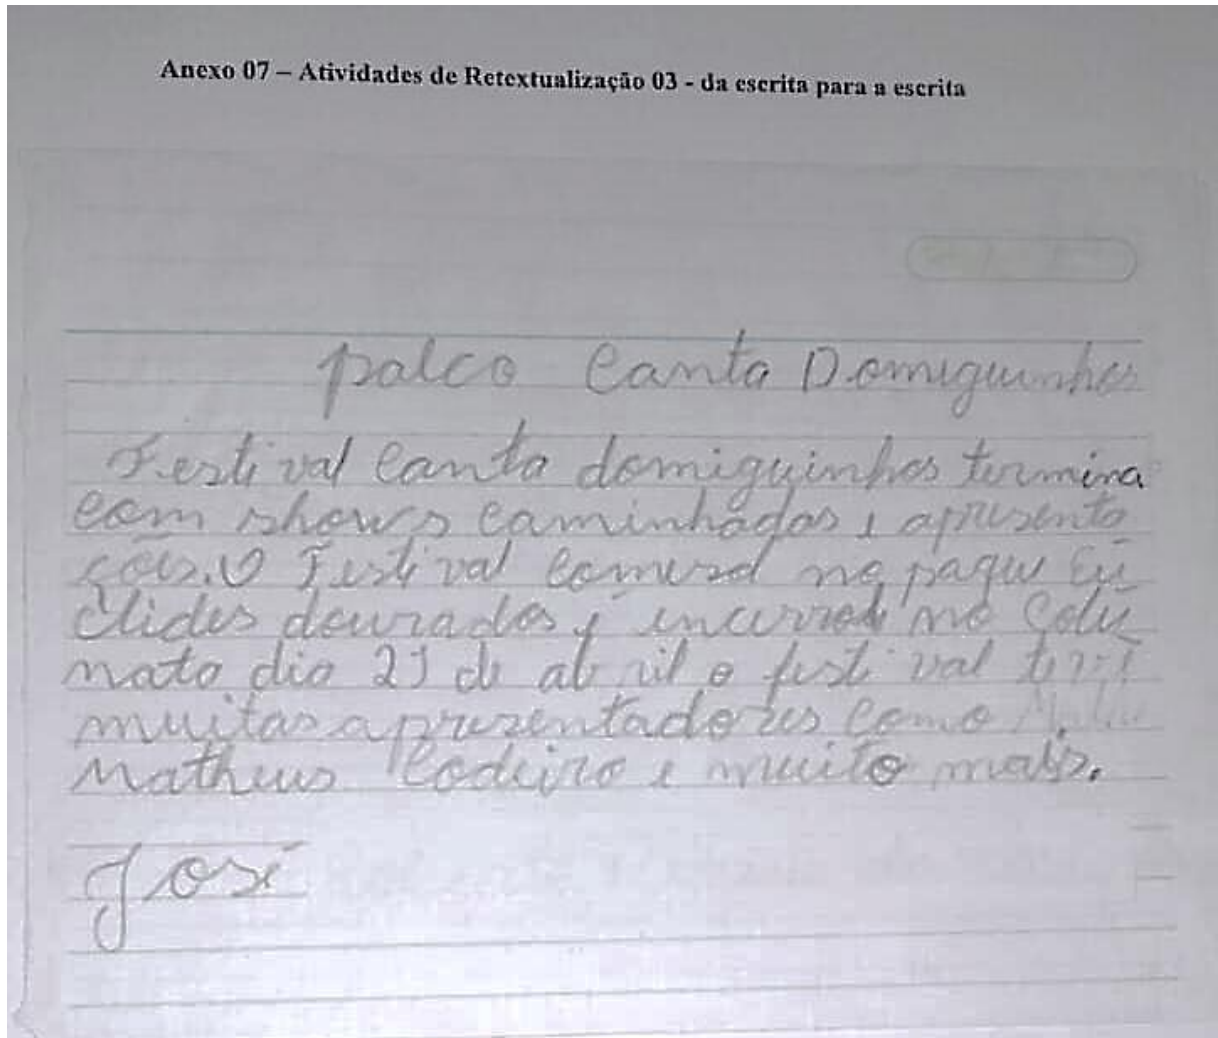 Anexo 07 – Atividades de Retextualização 03 - da escrita para a escrita
palco Canta Domiguinhos
Festival Canta domiguinhos termina
com shows caminhadas e apresenta
çois. O Festival comersa no paque Eu
clides dourados e incerrad no Colu
nata dia 29 de abril o festival terá
muitas apresentadores como
Matheus Codeiro e muito mais.
José